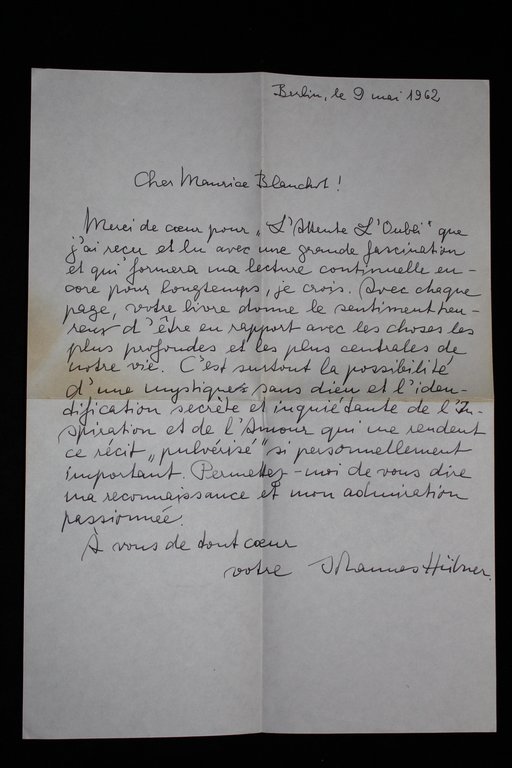 Berlin, le 9 mai 1962
Cher Maurice Blanchot !
Merci de cœur pour „L'Attente L'Oubli" que
j'ai reçu et lu avec une grande fascination
et qui formera ma lecture continuelle en-
core pour longtemps, je crois. Avec chaque
page, votre livre donne le sentiment heu-
reux d'être en rapport avec les choses les
plus profondes et les plus centrales de
notre vie. C'est surtout la possibilité
d'une mystique sans dieu et l'iden-
tification secrète et inquiétante de l'In-
spiration et de l'Amour qui me rendent
ce récit „pulvérisé" si personnellement
important. Permettez-moi de vous dire
ma reconnaissance et mon admiration
passionnée.
À vous de tout cœur
votre Johannes Hübner.